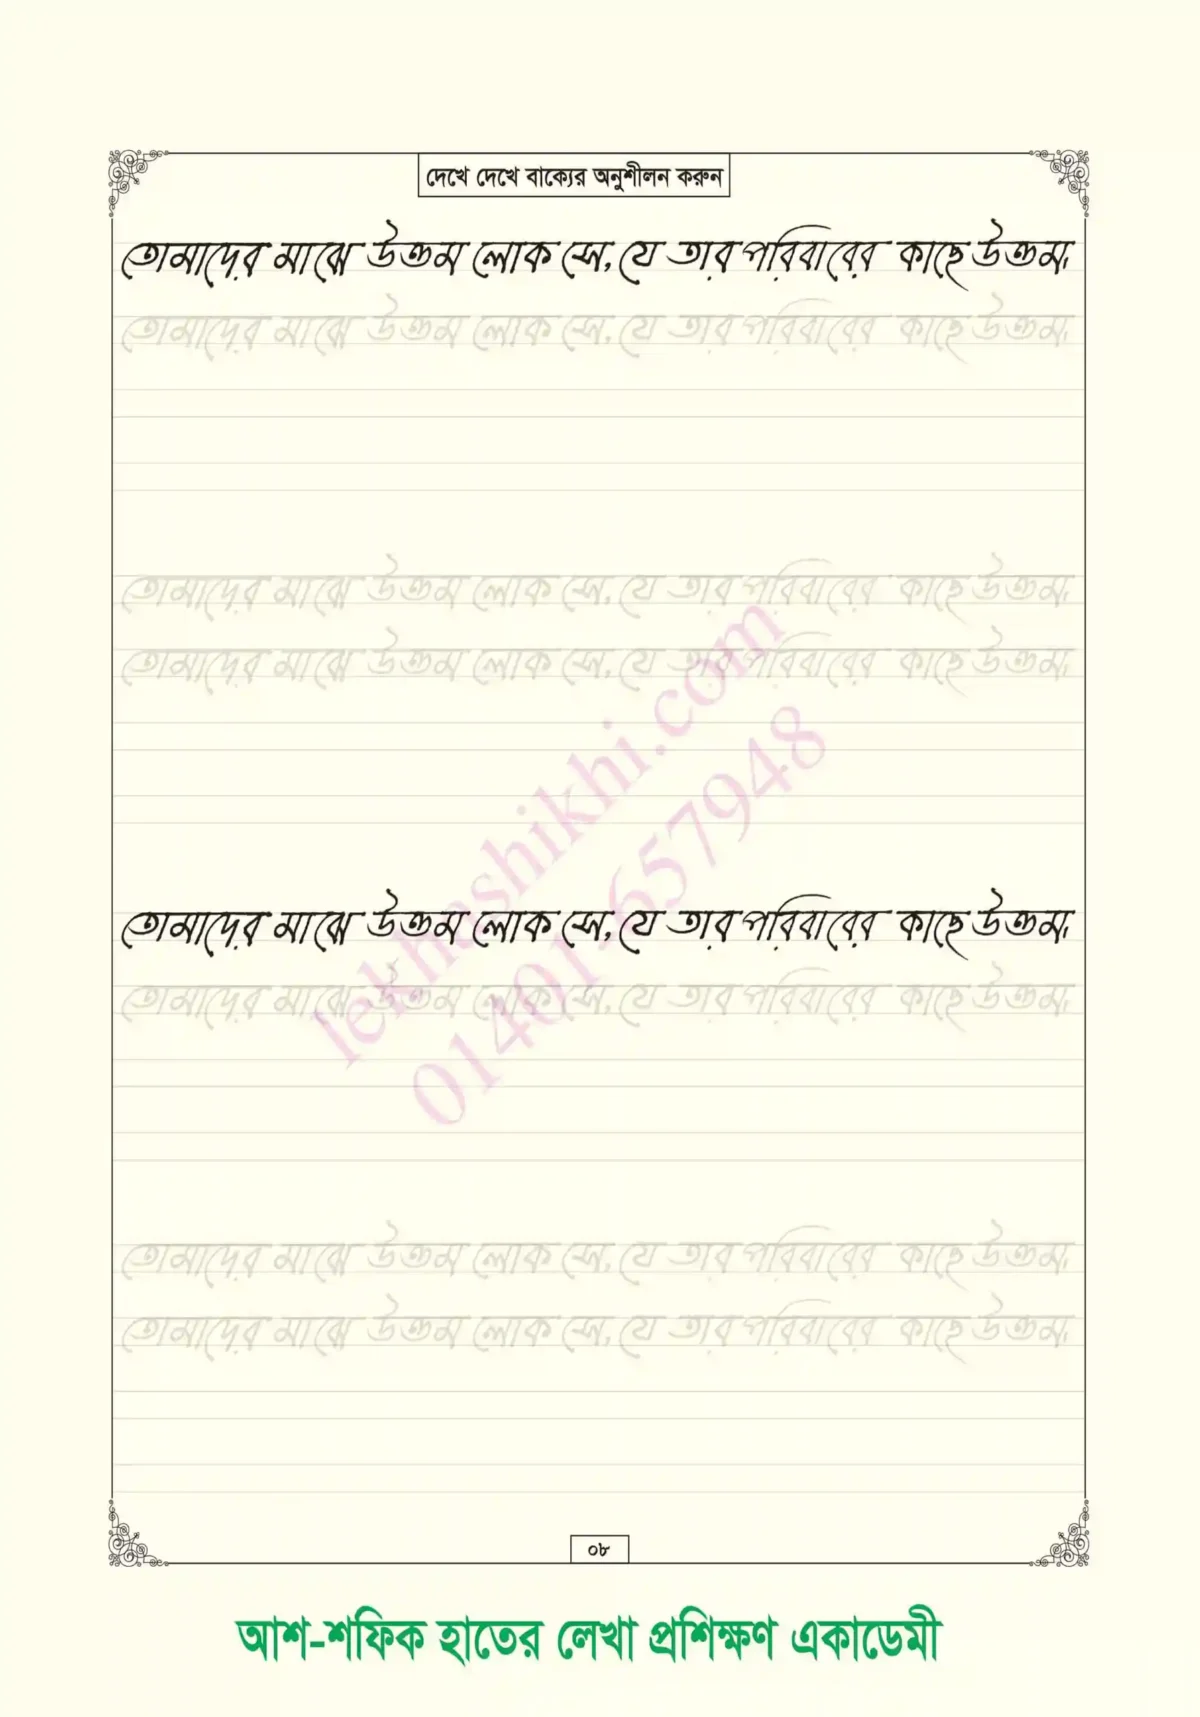 দেখে দেখে বাক্যের অনুশীলন করুন
তোমাদের মাঝে উত্তম লোক সে, যে তার পরিবারের কাছে উত্তম।
তোমাদের মাঝে উত্তম লোক সে, যে তার পরিবারের কাছে উত্তম।
তোমাদের মাঝে উত্তম লোক সে, যে তার পরিবারের কাছে উত্তম।
তোমাদের মাঝে উত্তম লোক সে, যে তার পরিবারের কাছে উত্তম।
lekhashikhi.com
01401-657948
তোমাদের মাঝে উত্তম লোক সে, যে তার পরিবারের কাছে উত্তম।
তোমাদের মাঝে উত্তম লোক সে, যে তার পরিবারের কাছে উত্তম।
তোমাদের মাঝে উত্তম লোক সে, যে তার পরিবারের কাছে উত্তম।
তোমাদের মাঝে উত্তম লোক সে, যে তার পরিবারের কাছে উত্তম।
০৮
আশ-শফিক হাতের লেখা প্রশিক্ষণ একাডেমী